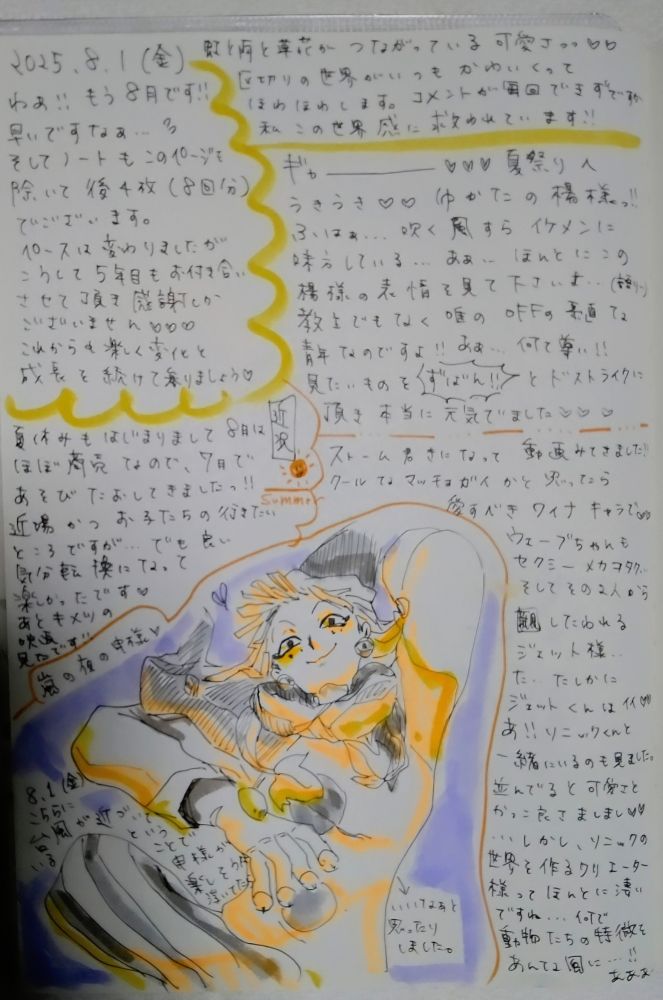 2025.8.1(金)
わぁ!! もう8月です!!
早いですなぁ…
そしてノートもこのページを
除いて後4枚(8回分)
でございます。
ペースは変わりましたが
こうして5年目もお付き合い
させて頂き感謝しか
ございません♡♡♡
これからも楽しく変化と
成長を続けて参りましょう♡
虹と雨と草花が つながっている 可愛さっっ♡♡
区切りの世界がいつも かわいくって
ほわほわします。コメントが毎回できずですが
私 この世界感に 救われています!!
ギャ――― ♡♡♡ 夏祭りへ
うきうき♡♡ ゆかたの楊様っ!!
ふはぁ… 吹く風すら イケメンに
味方している… あぁ… ほんとにこの
楊様の表情を見て下さいま…
教主でもなく唯の OFFの素直な
青年なのですよ!! あぁ… 何て尊い!!
見たいものを ずばん!! と ドストライクに
頂き本当に元気でました♡♡♡
近況
夏休みもはじまりまして 8月は
ほぼ商売なので、7月で
あそびたおしてきましたっ!!
近場かつ お子たちの行きたい
ところですが… でも良い
気分転換になって
楽しかったです♡
あとキメツの
映画
見たです!!
嵐の夜の申様♡
Summer
ストーム君きになって 動画みてきました!!
クールなマッチョガイかと思ったら
愛すべきワイナキャラで♡
ウェーブちゃんも
セクシーメカヲタク…
そしてその2人から
親したわれる
ジェット様…
た…たしかに
ジェットくんはイイ♡
あ!! ソニックくんと
一緒にいるのも見ました。
並んでると可愛さと
かっこ良さましまし♡♡
…しかし、ソニックの
世界を作るクリエーター
様ってほんとに凄い
ですね… 何で
動物たちの特徴を
あんな風に…!!
あああ
8.1(金)
こちらに
台風が近づいて
いる
ということで
申様が
楽しそうに
浮いてたら
いいなぁと
思ったり
しました。